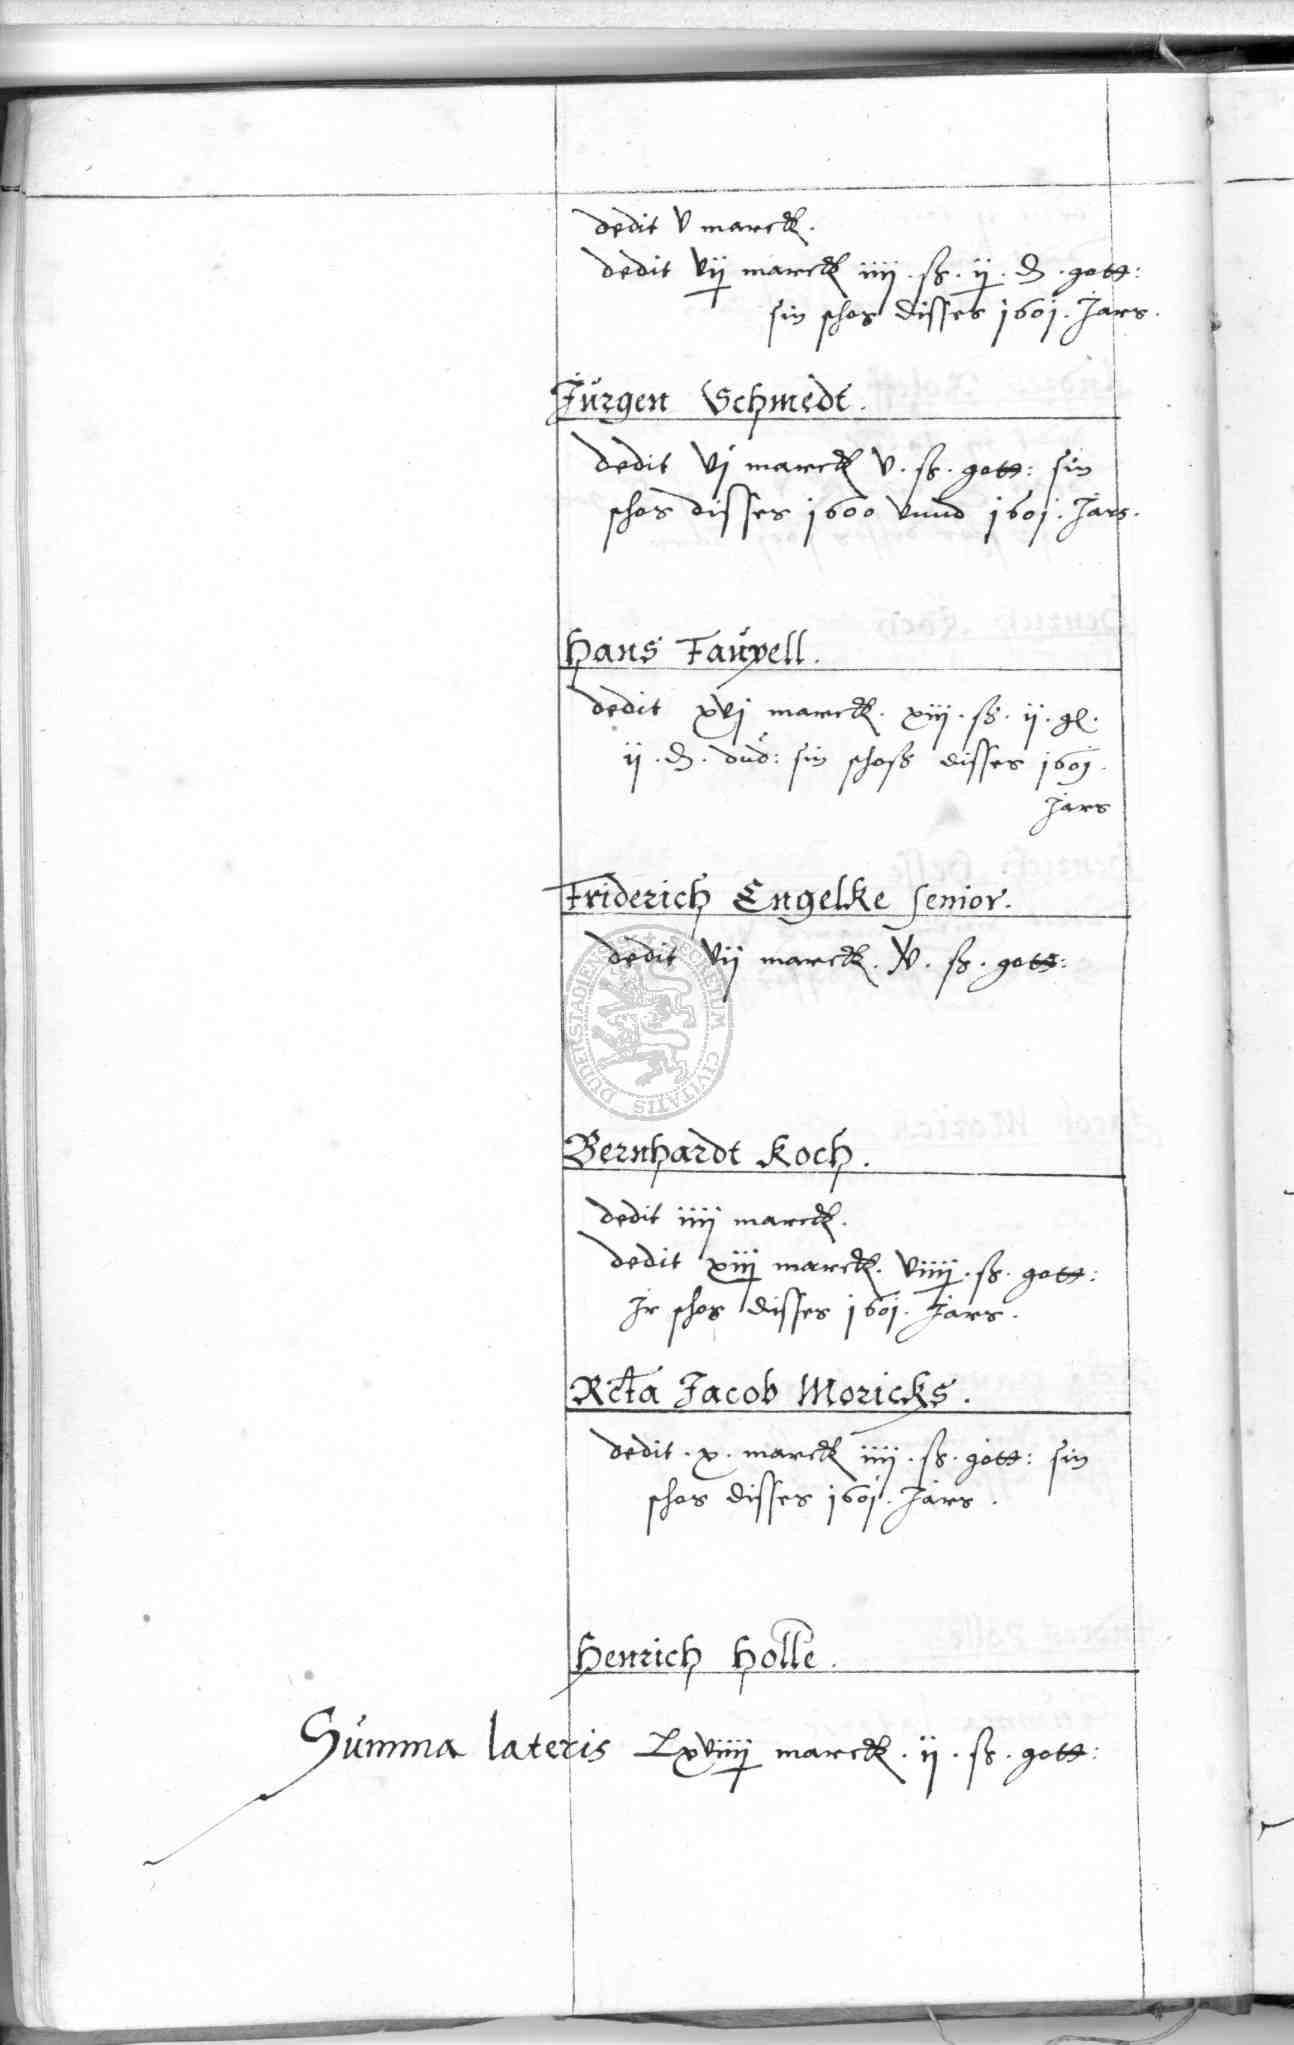 dedit v marck.
dedit vij marck iiij. ß. ij. d. gott:
sin schos disses 1601. Jars.
Jürgen Schmedt.
dedit vj marck v. ß. gott: sin
schos disses 1600 vnnd 1601. Jars.
Hans
dedit xvj marck. xiij. ß. ij. gl.
ij. d. dud: sin schoss disses 1601.
Jars
Friderich Engelke senior.
dedit vij marck. ß. gott:
Bernhardt Koch.
dedit iiij marck.
dedit xiij marck. viiij. ß. gott:
Jr schos disses 1601. Jars.
Rcta Jacob Moricks.
dedit. x. marck iiij. ß. gott: sin
schos disses 1601. Jars.
Henrich Holle.
Summa lateris Lxviiij marck. ij. ß. gott:
SECRETUM CIVITATIS DUDERSTADIENSIS